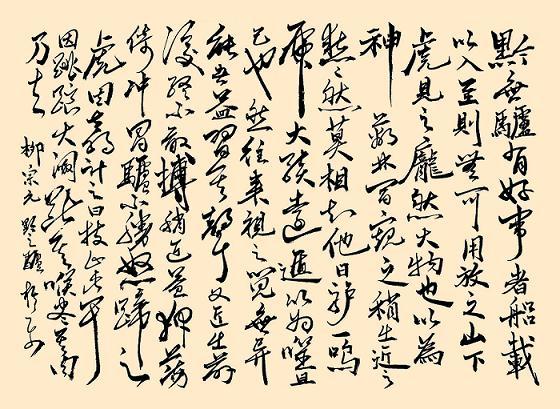 黔無驢有好事者船載
以入至則無可用放之山下
虎見之龐然大物也以為
神蔽林間窺之稍出近之
慭慭然莫相知他日驢一鳴
虎大駭遠遁以為噬且
己也然往來視之覺無異
能者益習其聲又近出前
後終不敢搏稍近益狎蕩
倚沖冒驢不勝怒蹄之
虎因喜計之曰技止此耳
因跳踉大㘎斷其喉盡其肉
乃去 柳宗元 黔之驢